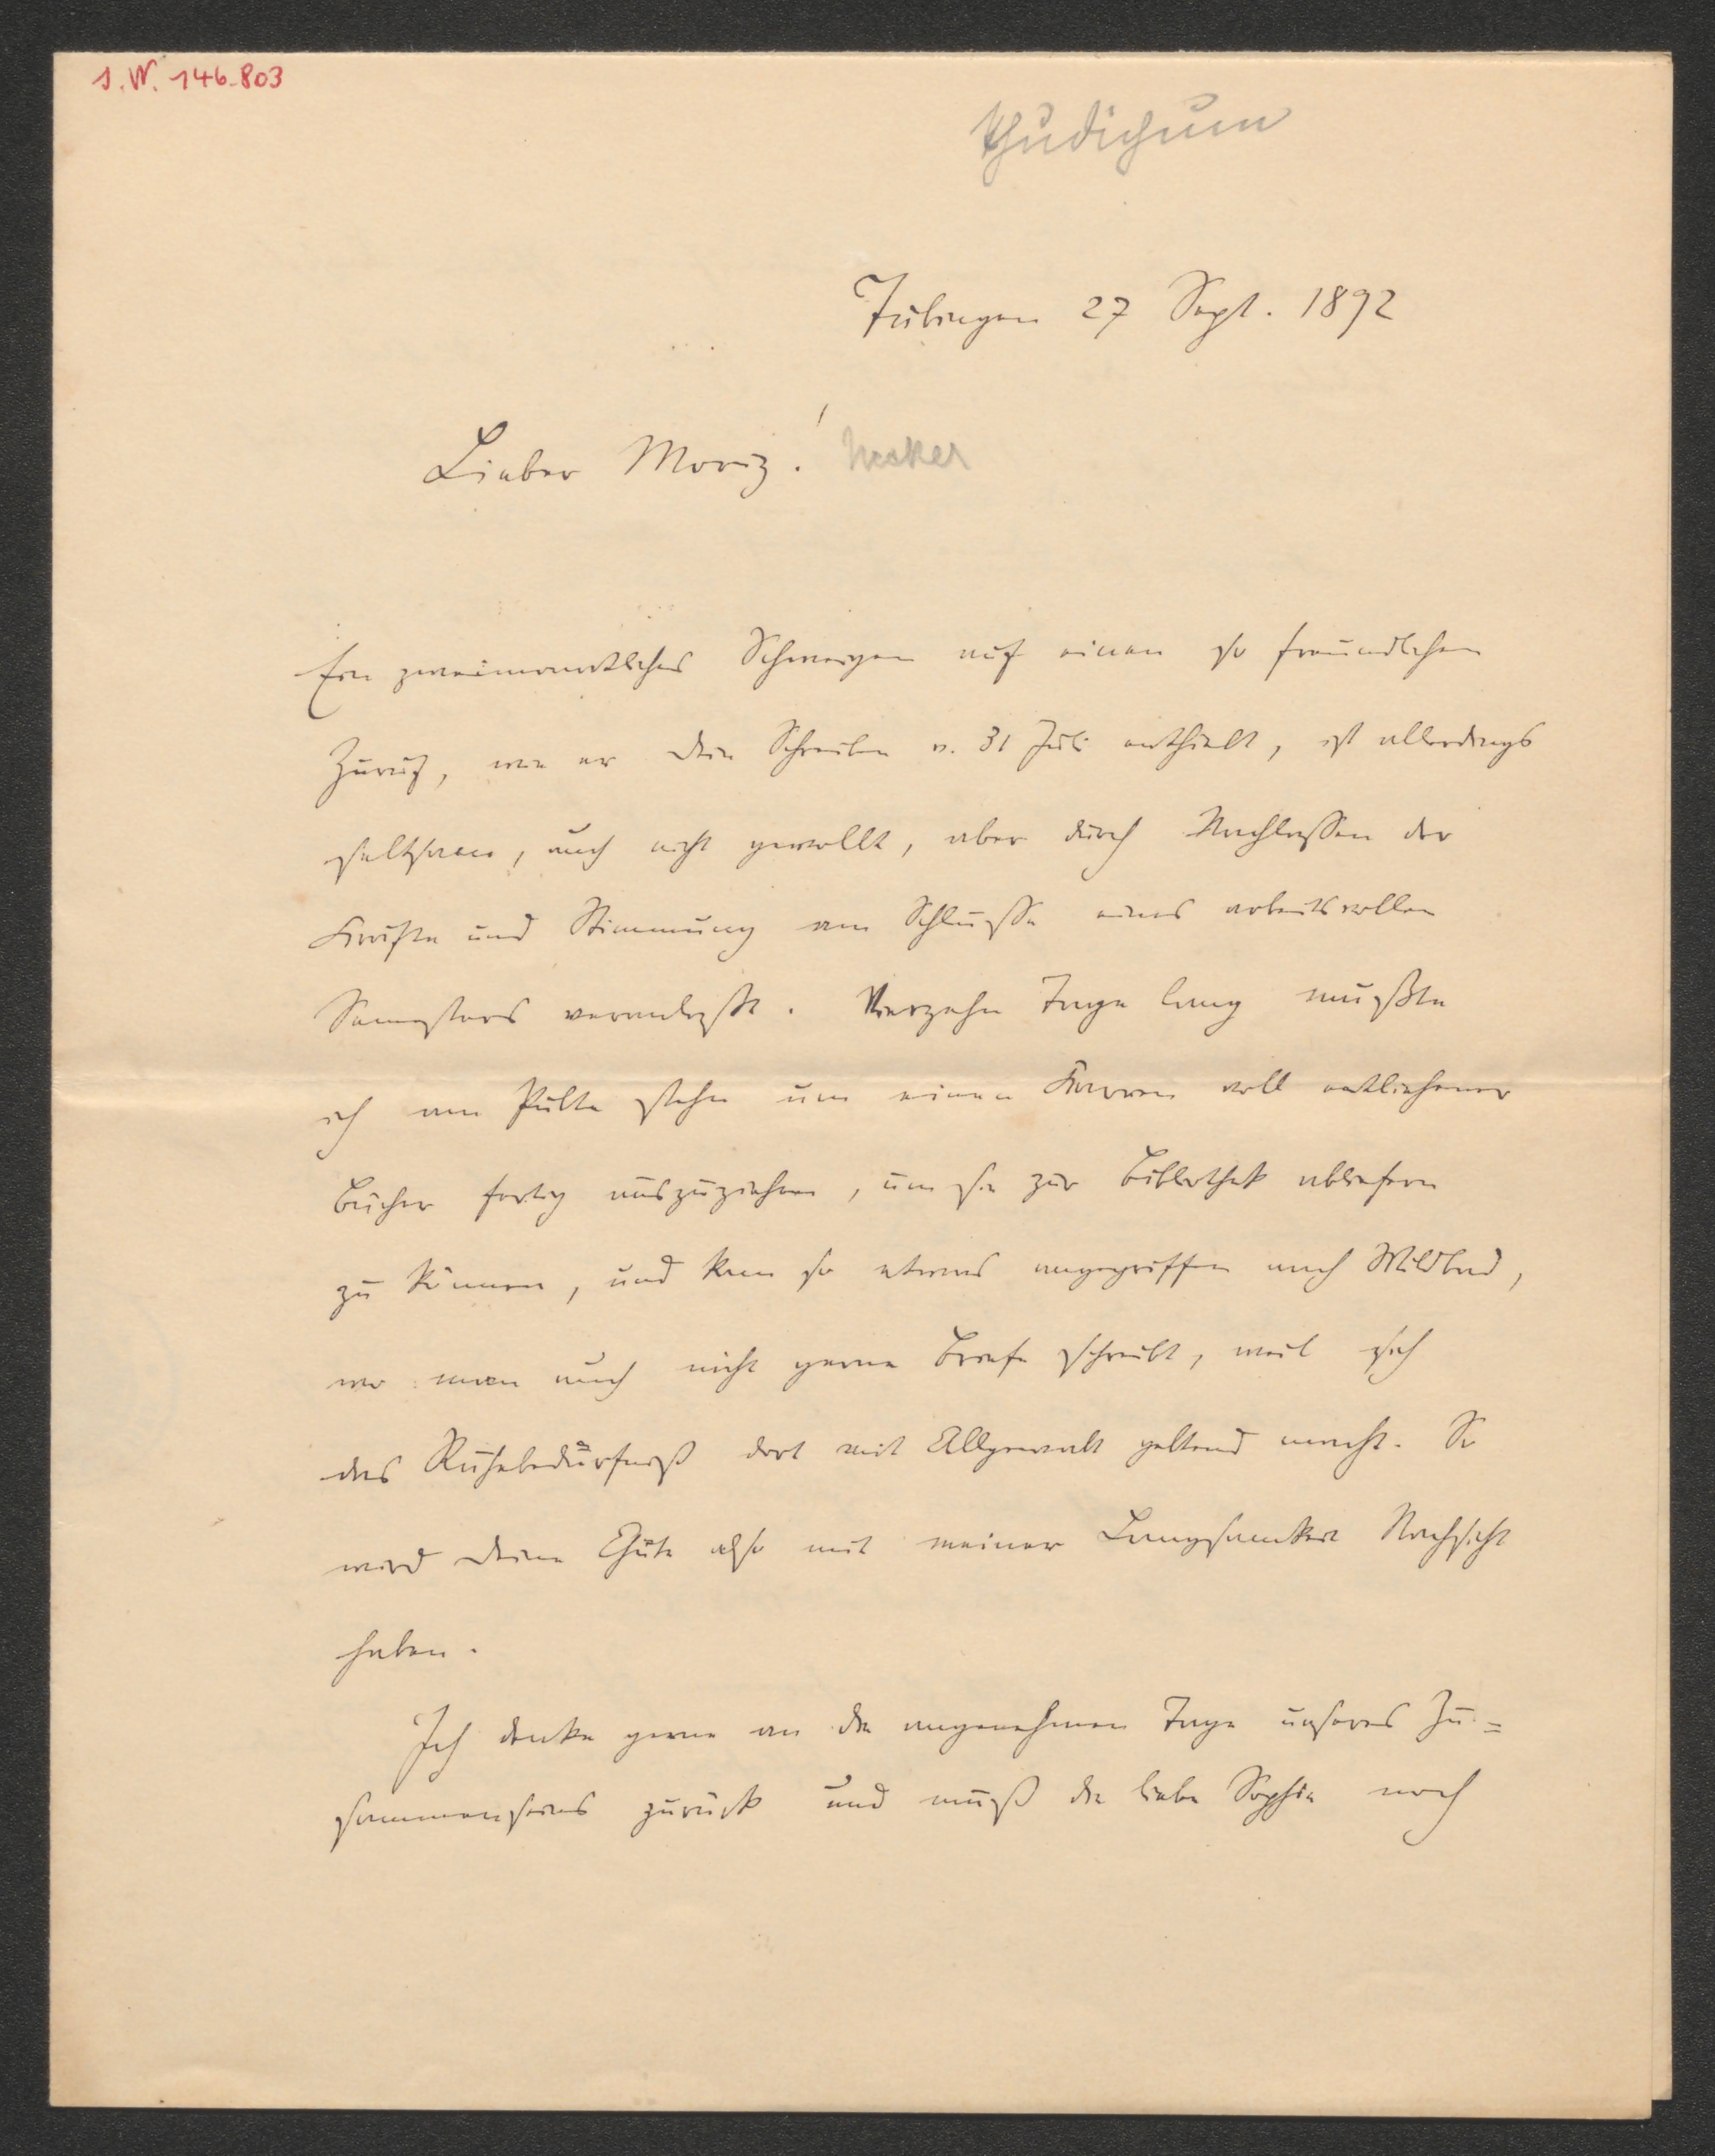 J.N. 146.803
Thudichum
Tübingen 27 Sept. 1892
Lieber Moriz! Necker
Ein zweimonatliches Schweigen auf einen so freundlichen
Zuruf, wie er Dein Schreiben v. 31 Juli enthielt, ist allerdings
seltsam, auch nicht gewollt, aber durch Nachlassen der
Kräfte und Stimmung am Schlusse eines arbeitsvollen
Semesters veranlaßt. Vierzehn Tage lang mußte
ich am Pulte stehn um einen Karren voll entliehener
Bücher fertig auszuziehen, um sie zur Bibliothek abliefern
zu können, und kam so etwas angegriffen nach Wildbad,
wo man auch nicht gerne Briefe schreibt, weil sich
das Ruhebedürfniß dort mit Allgewalt geltend macht. So
wird Deine Güte also mit meiner Langsamkeit Nachsicht
haben.
Ich denke gerne an die angenehmen Tage unseres Zu-
sammenseins zurück und muß die liebe Sophie noch